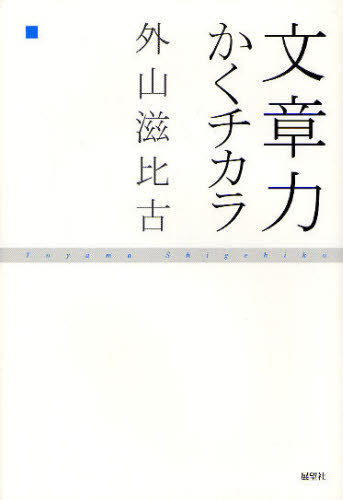 文章力
かくチカラ
外山滋比古
Toyama Shigehiko
展望社